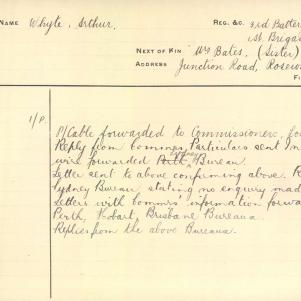 NAME Whyte, Arthur. REG. &C. 3rd Batter
1st. Brigad
NEXT OF KIN Mrs Bates, (Sister)
ADDRESS Junction Road, Rosew
F
1/P. P/Cable forwarded to Commissioners, fo
Reply from Commrs. Particulars sent In
Sydney
wire forwarded Perth Bureau.
Letter sent to above confirming above. R
Sydney Bureau, stating no enquiry mad
Letters with Commrs' information forwa
Perth, Hobart, Brisbane Bureaux.
Replies from the above Bureaux.